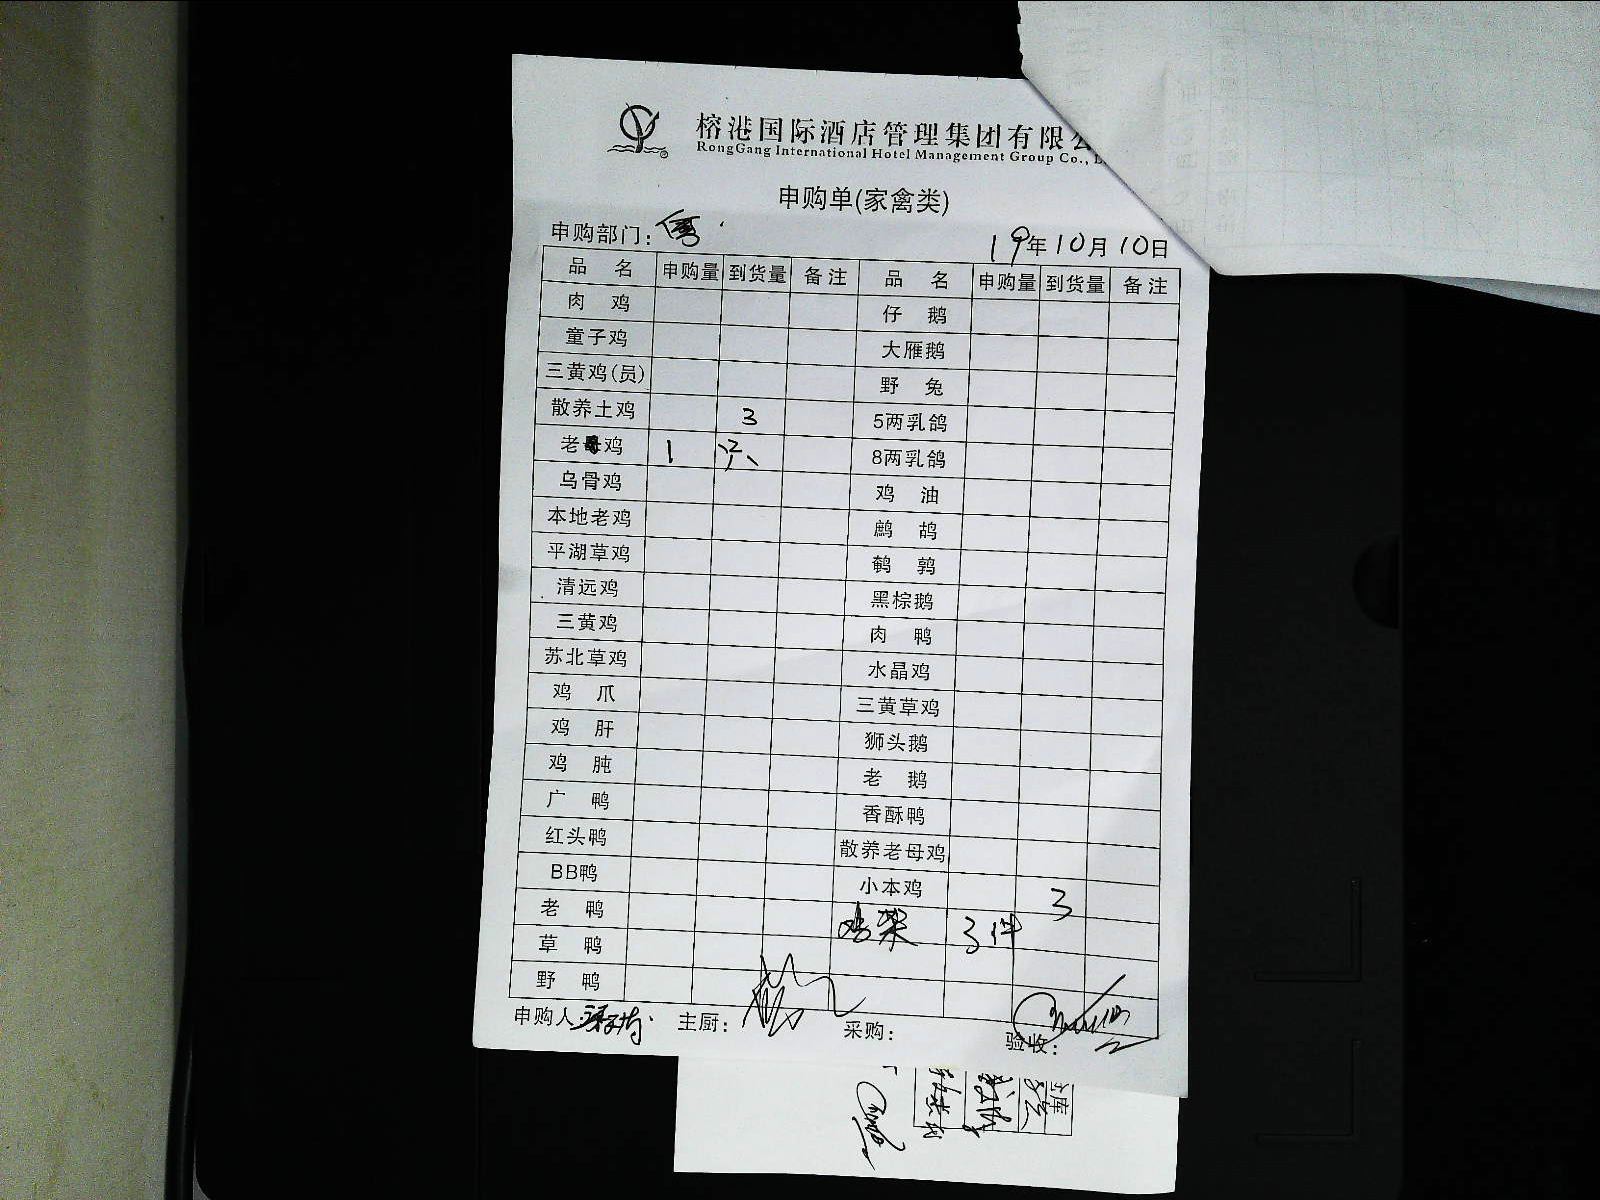 榕港国际酒店管理集团有限公
RongGang International Hotel Management Group Co.,
申购单(家禽类)
申购部门:
19年10月10日
品名 申购量 到货量 备注 品名 申购量 到货量 备注
肉鸡 仔鹅
童子鸡 大雁鹅
三黄鸡(员) 野兔
散养土鸡 3 5两乳鸽
老母鸡 1 只 8两乳鸽
乌骨鸡 鸡油
本地老鸡 鹧鸪
平湖草鸡 鹌鹑
清远鸡 黑棕鹅
三黄鸡 肉鸭
苏北草鸡 水晶鸡
鸡爪 三黄草鸡
鸡肝 狮头鹅
鸡肫 老鹅
广鸭 香酥鸭
红头鸭 散养老母鸡
BB鸭 小本鸡 3
老鸭 鸡架 3件
草鸭
野鸭
申购人: 主厨: 采购: 验收: